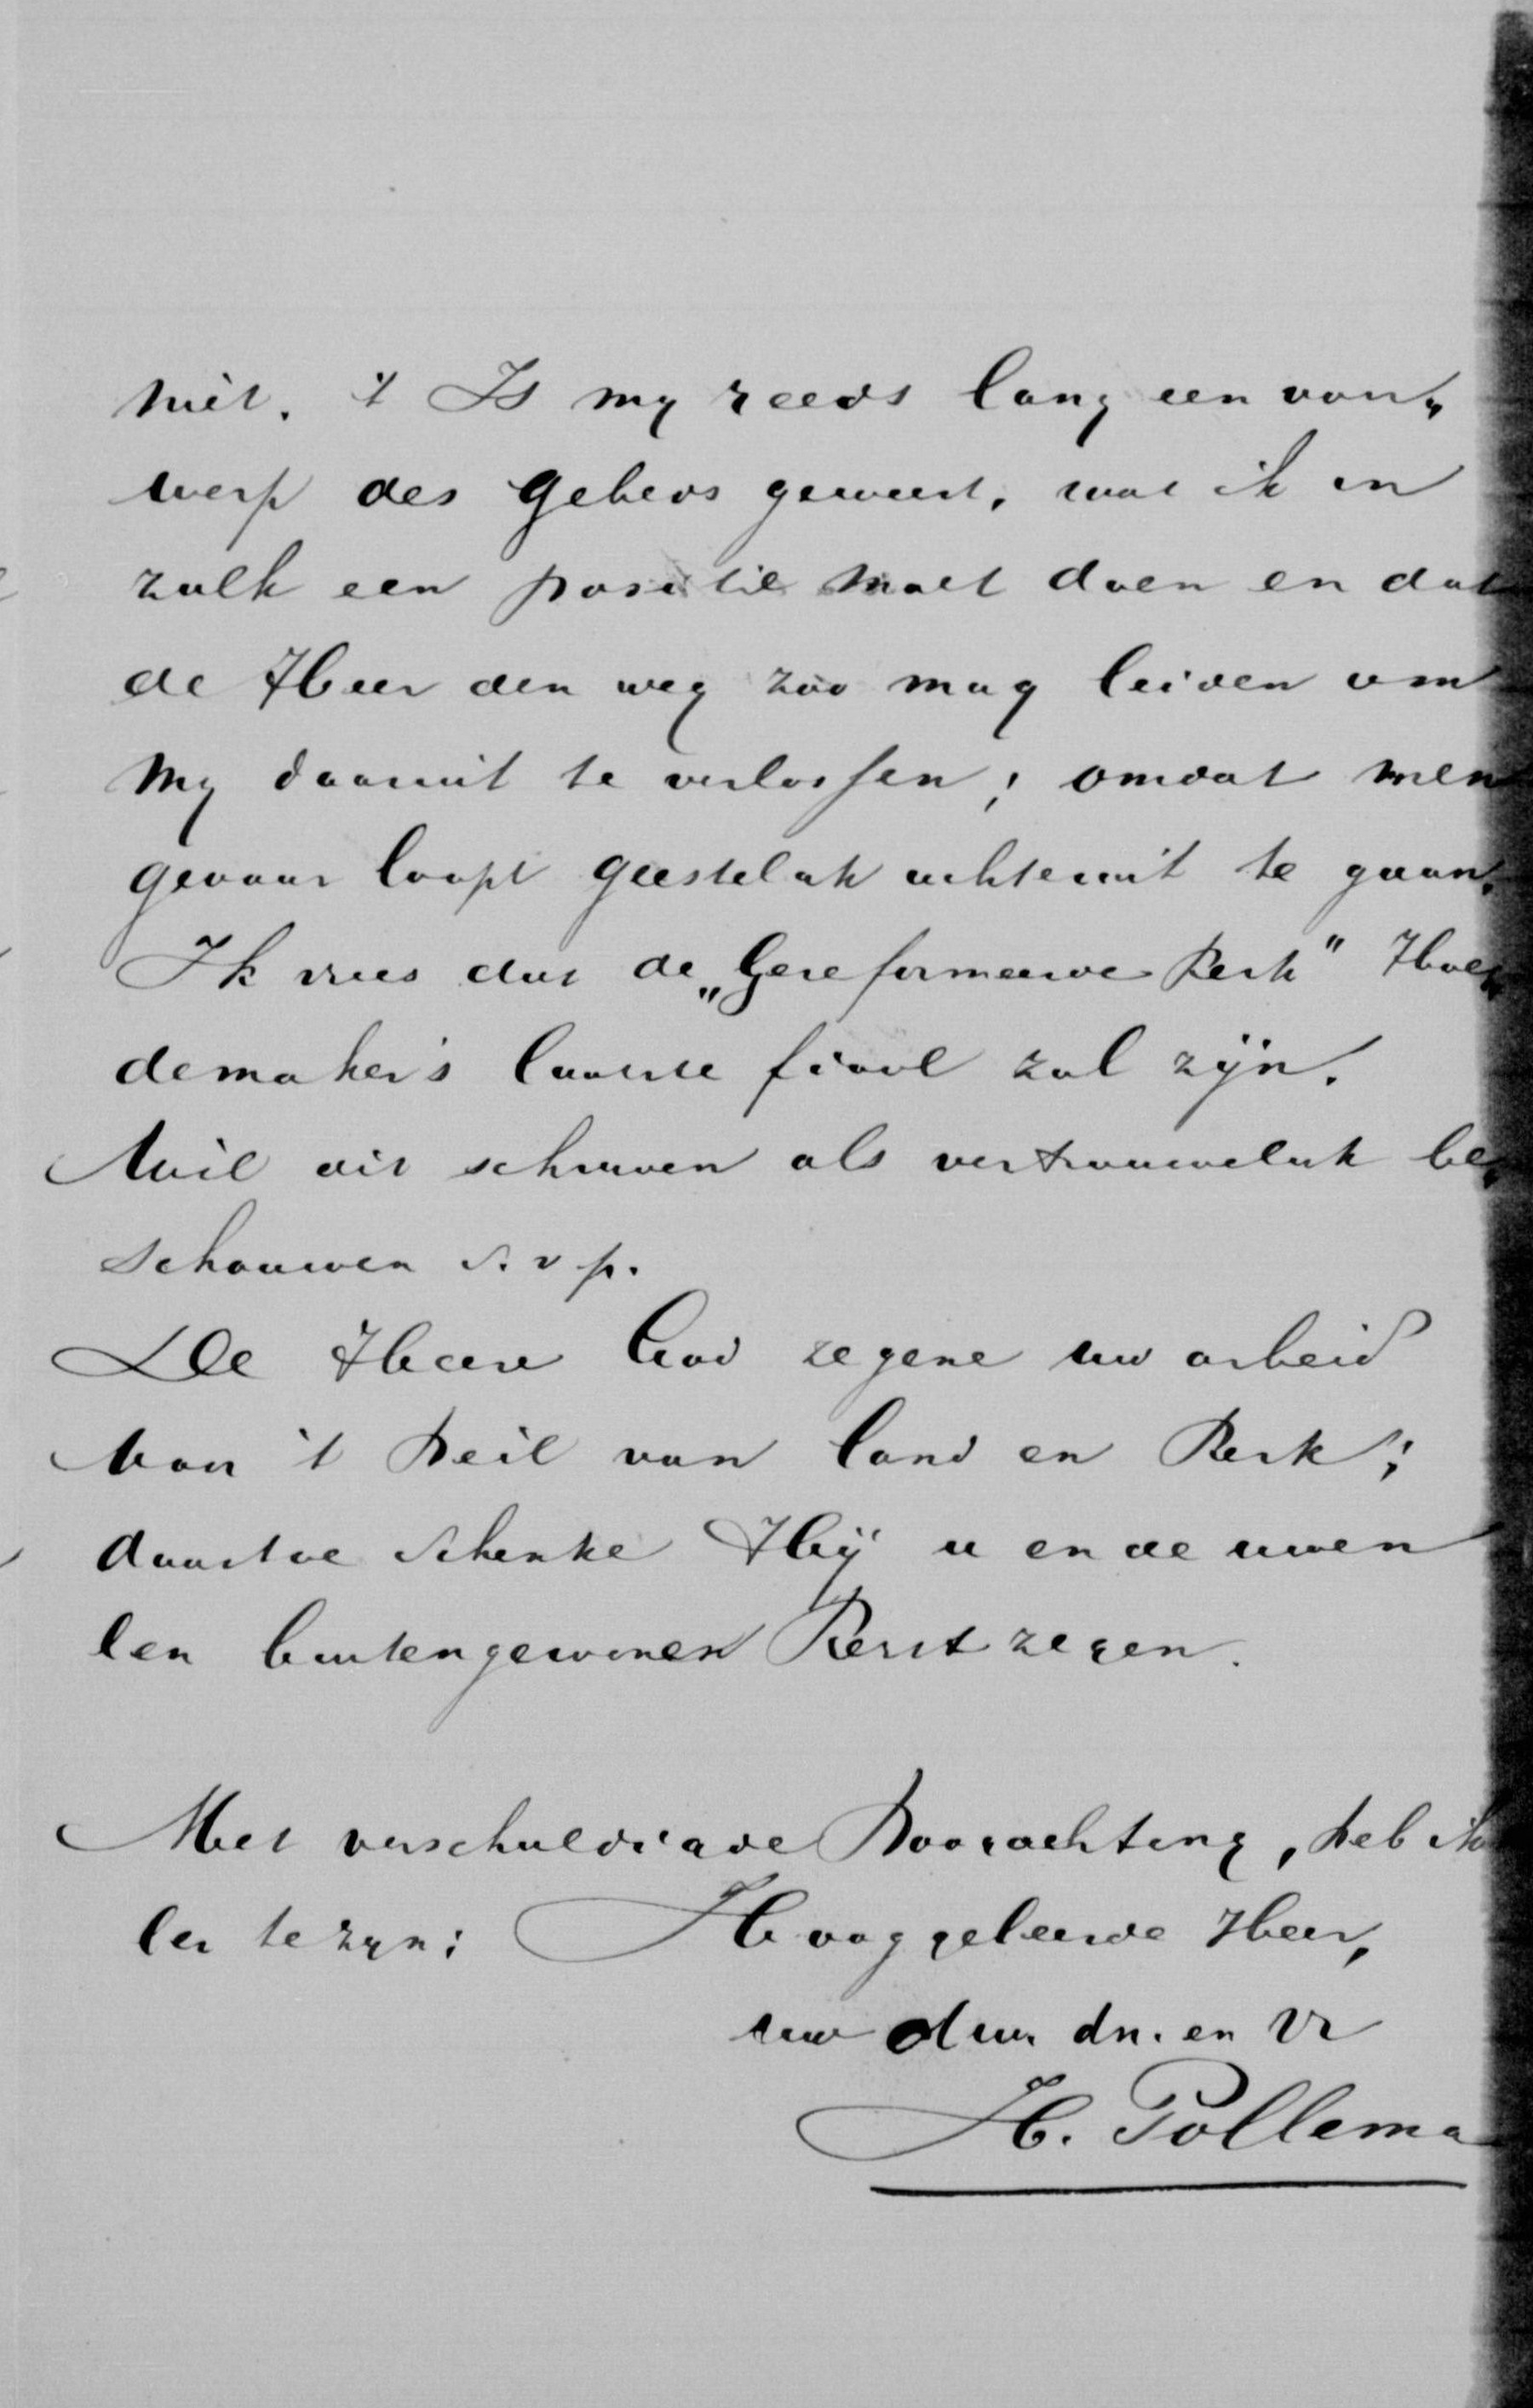 niet. 't Is my reeds lang een voor„
werp des gebeds geweest, wat ik in
zulk een positie moet doen en dat
de Heer den weg zoo mag leiden om
my daaruit te verlossen; omdat men
gevaar loopt geestelijk achteruit te gaan.
Ik vrees dat de „Gereformeerde Kerk" Hoe„
demaker's laatste fiool zal zijn.
Wil dit schrijven als vertrouwelijk be„
schouwen s.v.p.
De Heere God zegene uw arbeid
voor 't heil van land en Kerk;
daartoe schenke Hij u en de uwen
een buitengewonen Kerstzegen.
Met verschuldigde Hoogachting, heb ik
eer te zyn: Hooggeleerde Heer,
uw dw. dn. en vr
H. Pollema